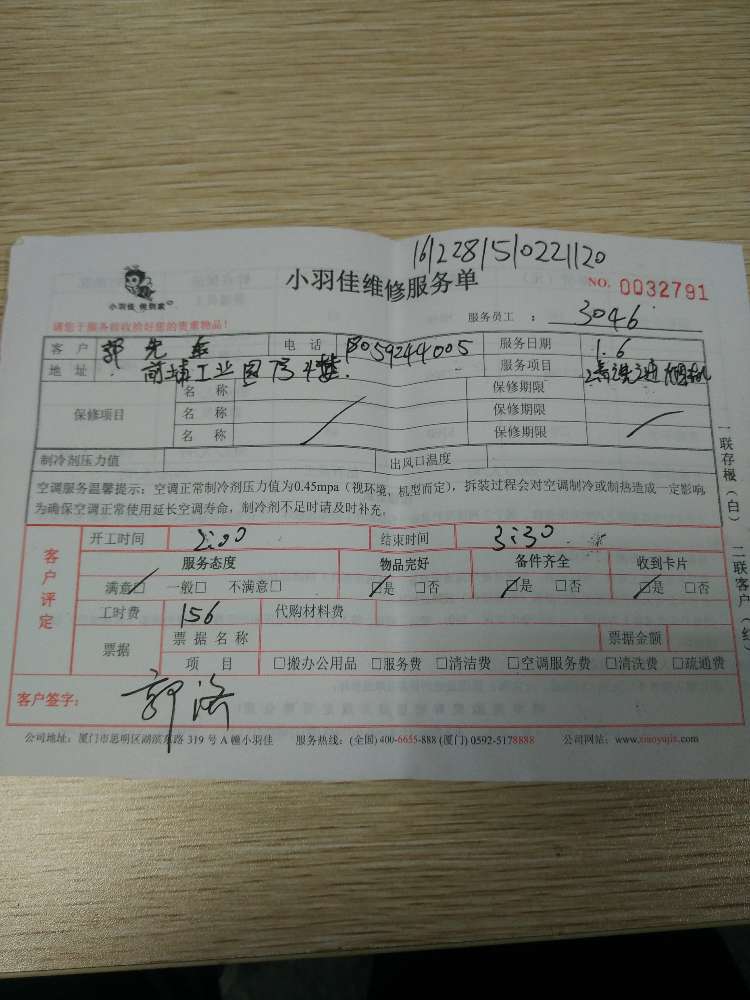 16122815102211120
小羽佳维修服务单
NO. 0032791
小羽佳 傲到家
服务员工 : 3046
请您于服务前收拾好您的贵重物品!
客 户 郭先生 电 话 18059244005 服务日期 1.6
地 址 前埔工业园 服务项目 清洗 烟机
保修项目 名 称 保修期限
名 称 保修期限
名 称 保修期限
制冷剂压力值 出风口温度
空调服务温馨提示:空调正常制冷剂压力值为0.45mpa(视环境、机型而定),拆装过程会对空调制冷或制热造成一定影响
为确保空调正常使用延长空调寿命,制冷剂不足时请及时补充。
一联存根(白) 二联客户(红
客户评定
开工时间 2:00 结束时间 3:30
服务态度 物品完好 备件齐全 收到卡片
满意☑ 一般□ 不满意□ ☑是 □否 ☑是 □否 ☑是 □否
工时费 156 代购材料费
票据 票 据 名 称 票据金额
项 目 □搬办公用品 □服务费 □清洁费 □空调服务费 □清洗费 □疏通费
客户签字: 郭
公司地址:厦门市思明区湖滨东路 319 号 A 幢小羽佳 服务热线:(全国) 400-6655-888 (厦门) 0592-5178888 公司网站:www.xiaoyujia.com